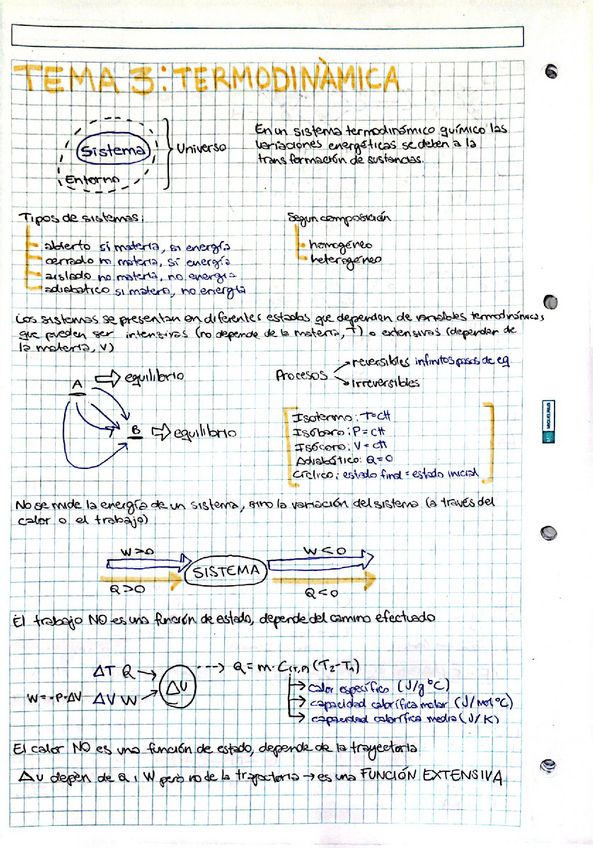 TEMA 3: TERMODINÀMICA
Sistema
Entorno
Universo
En un sistema termodinámico químico las
variaciones energéticas se deben a la
transformación de sustancias.
Tipos de sistemas:
abierto si materia, si energía
cerrado no materia, si energía
aislado no materia, no energía
adiabático si materia, no energía
Según composición
homogéneo
heterogéneo
Los sistemas se presentan en diferentes estados que dependen de variables termodinámicas,
que pueden ser intensivas (no depende de la materia, T) o extensivas (depender de
la materia, V)
A ⇒ equilibrio
B ⇒ equilibrio
Procesos
reversibles infinitos pasos de eq
irreversibles
Isotermo: T=ct
Isóbaro: P=ct
Isócoro: V=ct
Adiabático: Q=0
Cíclico: estado final = estado inicial
No se mide la energía de un sistema, sino la variación del sistema (a través del
calor o el trabajo)
W>0
Q>0
SISTEMA
W<0
Q<0
El trabajo NO es una función de estado, depende del camino efectuado
ΔT Q
W=-P·ΔV ΔV W
ΔU
Q = m·C(T,P) (T₂-T₁)
calor específico (J/g°C)
capacidad calorífica molar (J/mol°C)
capacidad calorífica media (J/K)
El calor NO es una función de estado, depende de la trayectoria
ΔU depèn de Q i W pero no de la trayectoria → es una FUNCIÓN EXTENSIVA
MIQUELRIUS